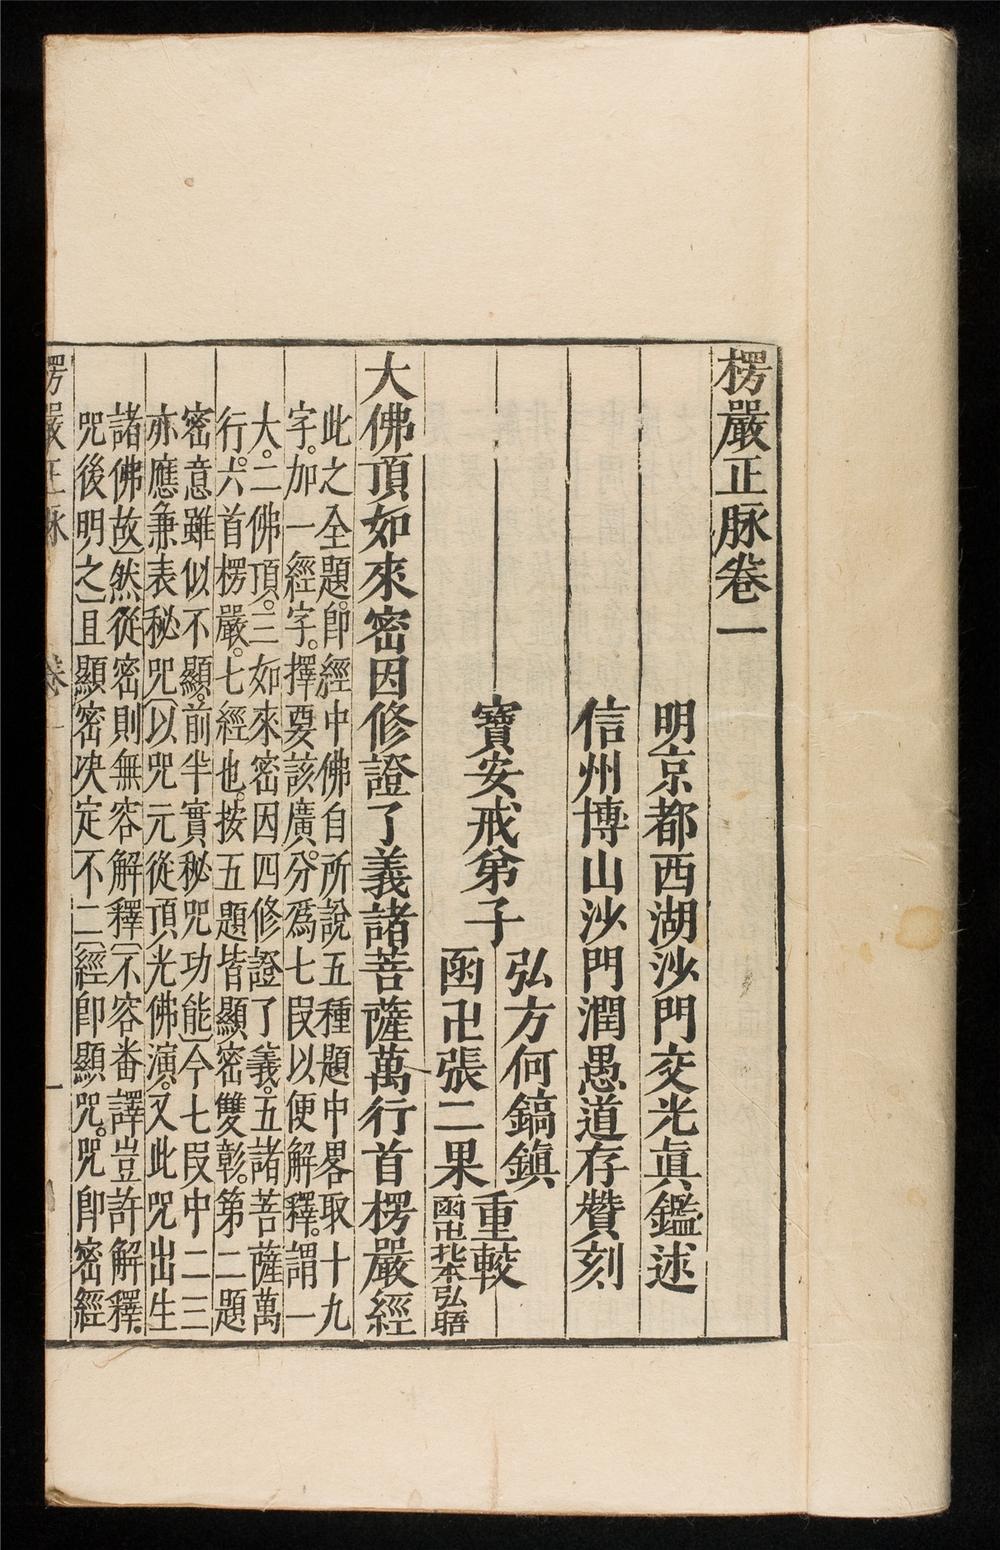 楞嚴正脉卷一
明京都西湖沙門交光眞鑑述
信州博山沙門潤愚道存贊刻
寶安戒弟子
弘方何鎬鎭
函卍張二果
重較
大佛頂如來密因修證了義諸菩薩萬行首楞嚴經
此之全題。卽經中佛自所說五種題中畧取十九
字。加一經字。擇要該廣。分爲七叚以便解釋。謂一
大。二佛頂。三如來密因四修證了義。五諸菩薩萬
行。六首楞嚴。七經也。按五題皆顯密雙彰。第二題
密意雖似不顯。前半實秘咒功能〕今七叚中二三
亦應兼表秘咒〔以咒元從頂光佛演。又此咒出生
諸佛故〕然從密則無容解釋〔不容畨譯豈許解釋。
咒後明之〕且顯密决定不二〔經卽顯咒。咒卽密經
楞嚴正脉 卷一 一